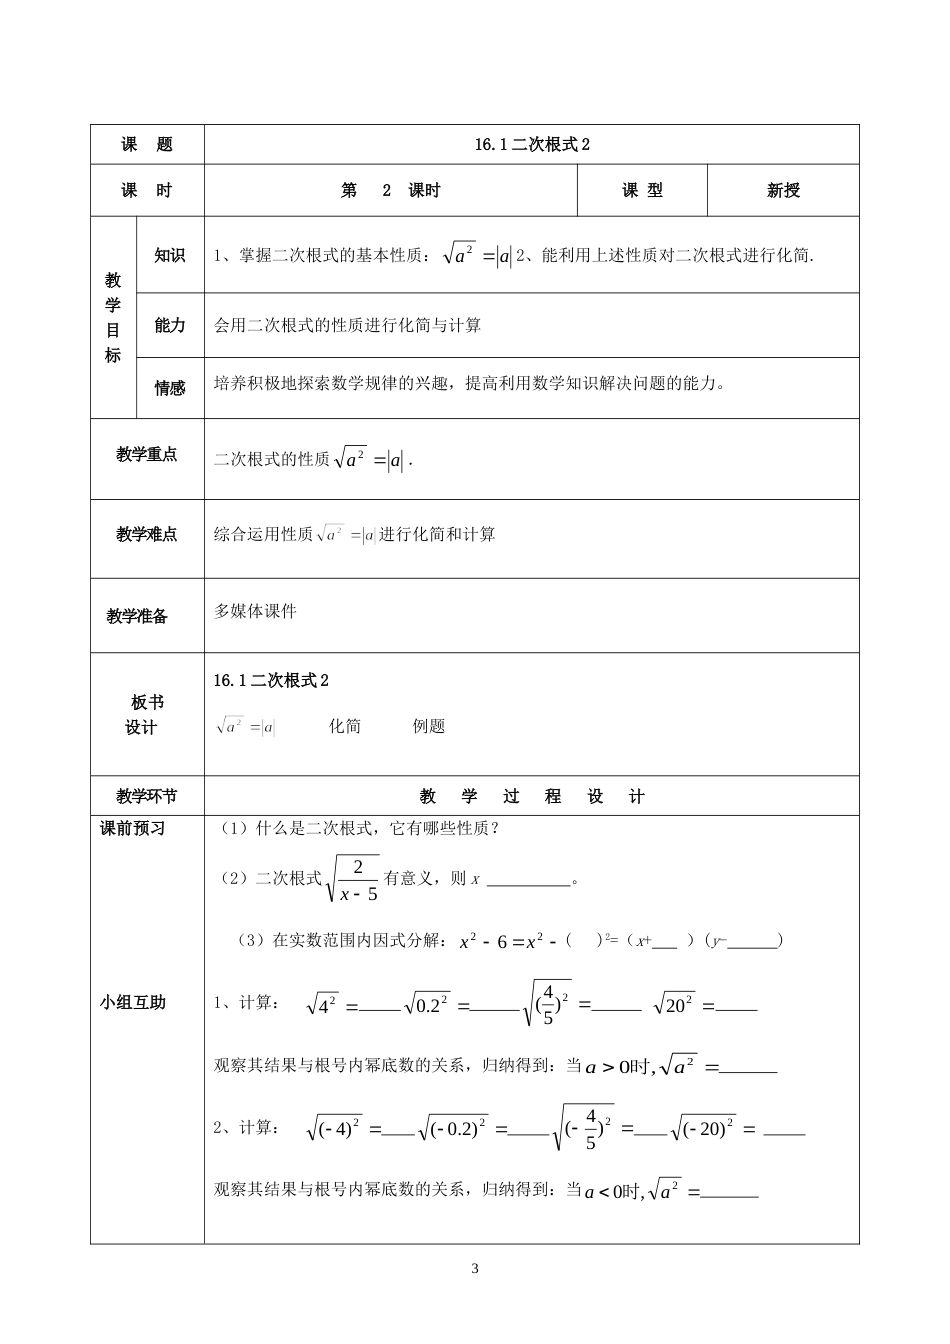 课 题 16.1二次根式2
课 时 第 2 课时 课 型 新授
教学目标 知识 1、掌握二次根式的基本性质：√a² =|a| 2、能利用上述性质对二次根式进行化简.
能力 会用二次根式的性质进行化简与计算
情感 培养积极地探索数学规律的兴趣，提高利用数学知识解决问题的能力。
教学重点 二次根式的性质√a² =|a|.
教学难点 综合运用性质√a² =|a|进行化简和计算
教学准备 多媒体课件
板书
设计
16.1二次根式2
√a² =|a| 化简 例题
教学环节 教 学 过 程 设 计
课前预习 （1）什么是二次根式，它有哪些性质？
（2）二次根式√(2/(x-5))有意义，则x __________。
（3）在实数范围内因式分解：x²-6=x²-( )²=（x+___ ）(y-______)
小组互助 1、计算： √4² =_____√0.2² =______√(4/5)² =______ √20² =_____
观察其结果与根号内幂底数的关系，归纳得到：当a>0时,√a² =_______
2、计算： √(-4)² =____√(-0.2)² =_____√(-4/5)² =____√(-20)² = _____
观察其结果与根号内幂底数的关系，归纳得到：当a<0时,√a² =_______
3